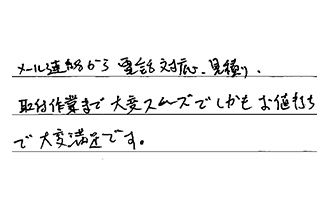 メール連絡から電話対応、見積り、
取付作業まで大変スムーズでしかもお値打ち
で大変満足です。